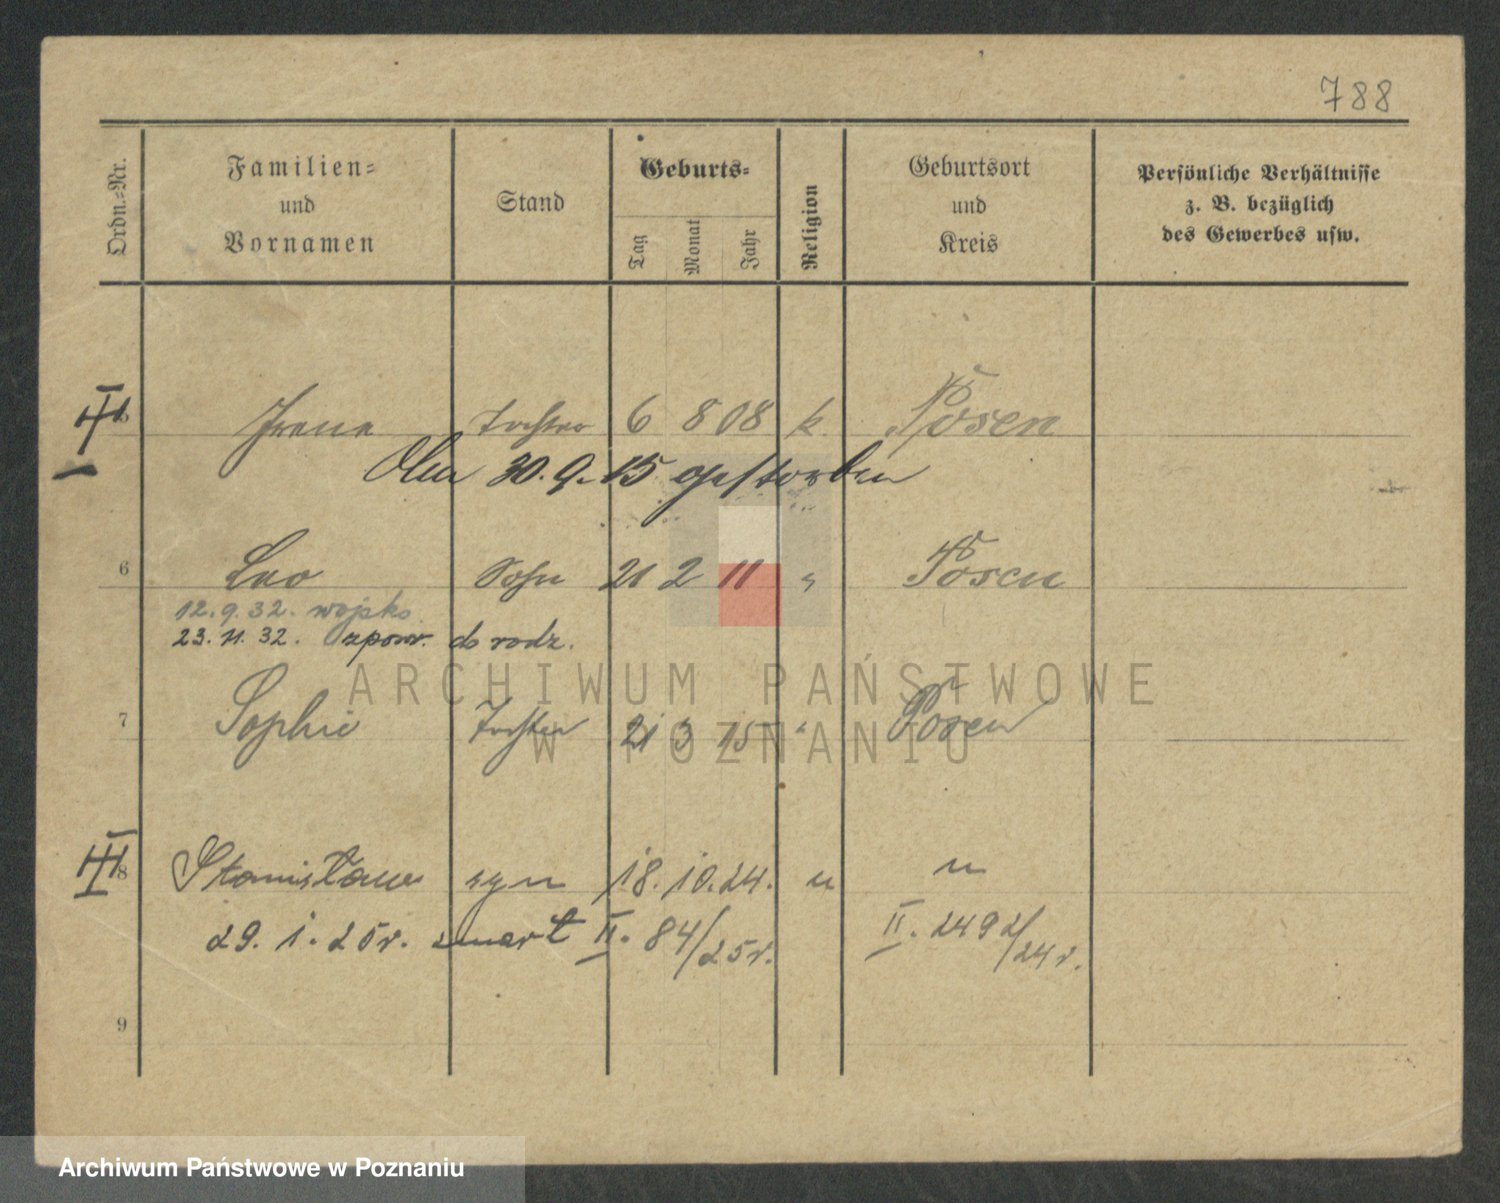 788
Ordn.=Nr.
Familien=
und
Vornamen
Stand
Geburts=
Tag
Monat
Jahr
Religion
Geburtsort
und
Kreis
Persönliche Verhältnisse
z. B. bezüglich
des Gewerbes usw.
Irene Tochter 6 8 08 k. Posen
30.9.15 gestorben
6 Leo Sohn 21 2 11 " Posen
12.9.32. wojsko.
23.11.32. zpowr. do rodz.
7 Sophie Tochter 21 3 15 " Posen
8 Stanisław syn 18. 10. 24. " "
29. 1. 25 r. zmarł II. 84/25 r. II. 2492/24 r.
9
ARCHIWUM PAŃSTWOWE
W POZNANIU
Archiwum Państwowe w Poznaniu